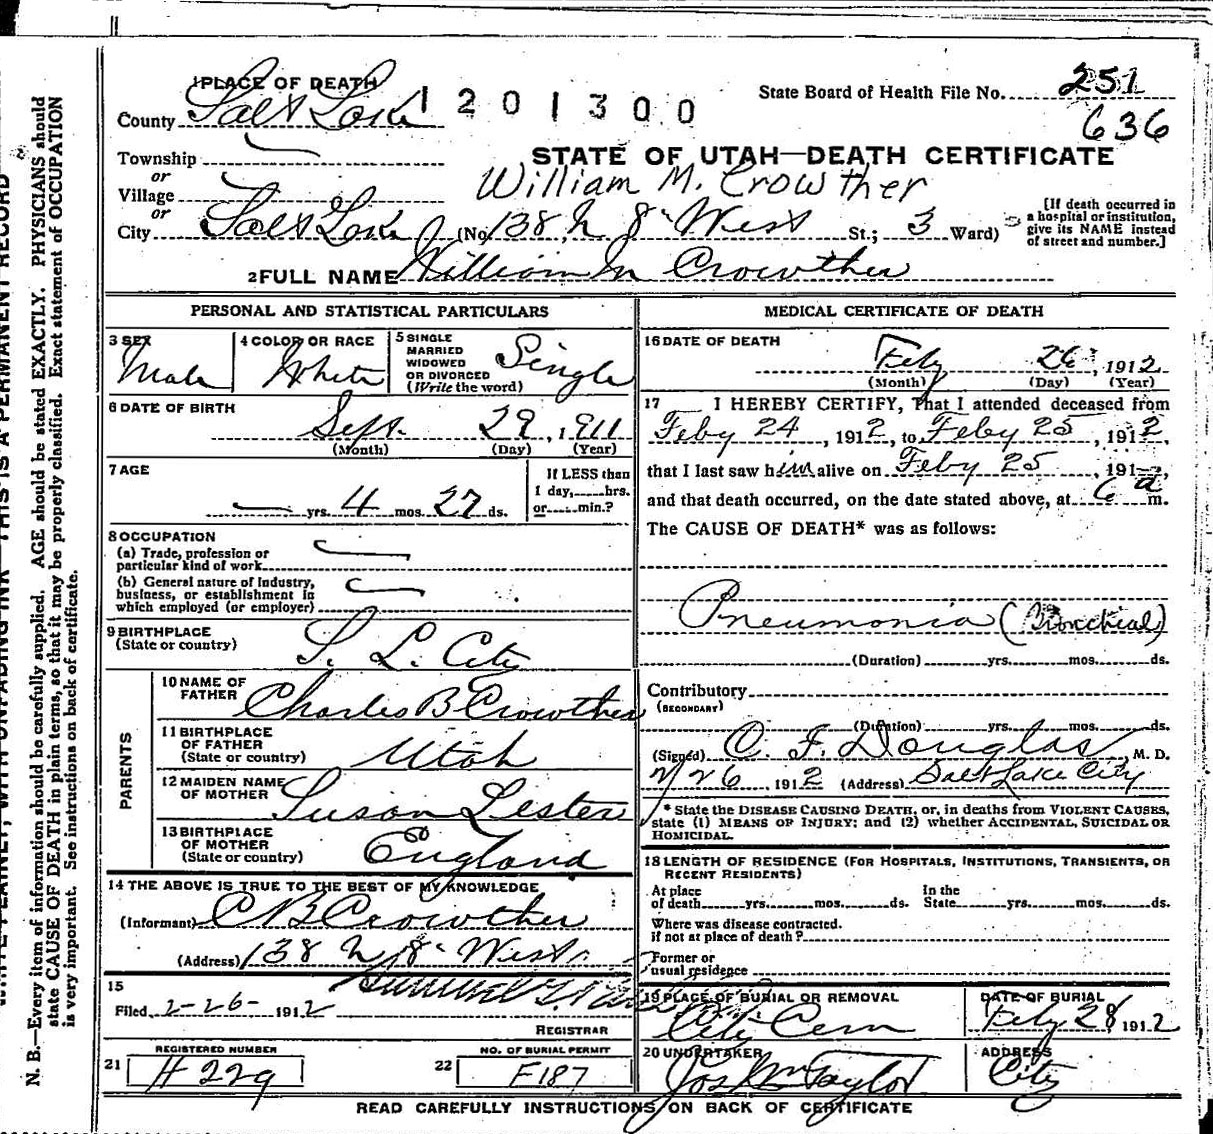 PLACE OF DEATH
County Salt Lake 1201300
State Board of Health File No. 251
636
Township
or
Village
or
STATE OF UTAH—DEATH CERTIFICATE
William M. Crowther
City Salt Lake (No. 138 N 8" West St.; 3 Ward)
[If death occurred in
a hospital or institution,
give its NAME instead
of street and number.]
2 FULL NAME William M Crowther
PERSONAL AND STATISTICAL PARTICULARS
3 SEX
Male
4 COLOR OR RACE
White
5 SINGLE
MARRIED
WIDOWED
OR DIVORCED
(Write the word)
Single
6 DATE OF BIRTH
Sept. 29, 1911
(Month) (Day) (Year)
7 AGE
yrs. 4 mos. 27 ds.
If LESS than
1 day,......hrs.
or......min.?
8 OCCUPATION
(a) Trade, profession or
particular kind of work
(b) General nature of Industry,
business, or establishment in
which employed (or employer)
9 BIRTHPLACE
(State or country)
S. L. City
PARENTS
10 NAME OF
FATHER
Charles B Crowther
11 BIRTHPLACE
OF FATHER
(State or country)
Utah
12 MAIDEN NAME
OF MOTHER
Susan Lester
13 BIRTHPLACE
OF MOTHER
(State or country)
England
14 THE ABOVE IS TRUE TO THE BEST OF MY KNOWLEDGE
(Informant) C B Crowther
(Address) 138 N 8" West
15
Filed 2-26- 1912
REGISTRAR
21
REGISTERED NUMBER
H 229
22
NO. OF BURIAL PERMIT
F187
MEDICAL CERTIFICATE OF DEATH
16 DATE OF DEATH
Feby 26, 1912
(Month) (Day) (Year)
17 I HEREBY CERTIFY, That I attended deceased from
Feby 24, 1912, to Feby 25, 1912,
that I last saw him alive on Feby 25, 191
and that death occurred, on the date stated above, at 6 a m.
The CAUSE OF DEATH* was as follows:
Pneumonia (Bronchial)
(Duration) yrs. mos. ds.
Contributory
(SECONDARY)
(Duration) yrs. mos. ds.
(Signed) C. F. Douglas, M. D.
2/26, 1912 (Address) Salt Lake City
* State the DISEASE CAUSING DEATH, or, in deaths from VIOLENT CAUSES,
state (1) MEANS OF INJURY; and (2) whether ACCIDENTAL, SUICIDAL OR
HOMICIDAL.
18 LENGTH OF RESIDENCE (FOR HOSPITALS, INSTITUTIONS, TRANSIENTS, OR
RECENT RESIDENTS)
At place
of death yrs. mos. ds.
In the
State yrs. mos. ds.
Where was disease contracted.
if not at place of death?
Former or
usual residence
19 PLACE OF BURIAL OR REMOVAL
City Cem
DATE OF BURIAL
Feby 28 1912
20 UNDERTAKER
Jos Wm Taylor
ADDRESS
City
READ CAREFULLY INSTRUCTIONS ON BACK OF CERTIFICATE
N. B.—Every item of information should be carefully supplied. AGE should be stated EXACTLY. PHYSICIANS should
state CAUSE OF DEATH in plain terms, so that it may be properly classified. Exact statement of OCCUPATION
is very important. See instructions on back of certificate.